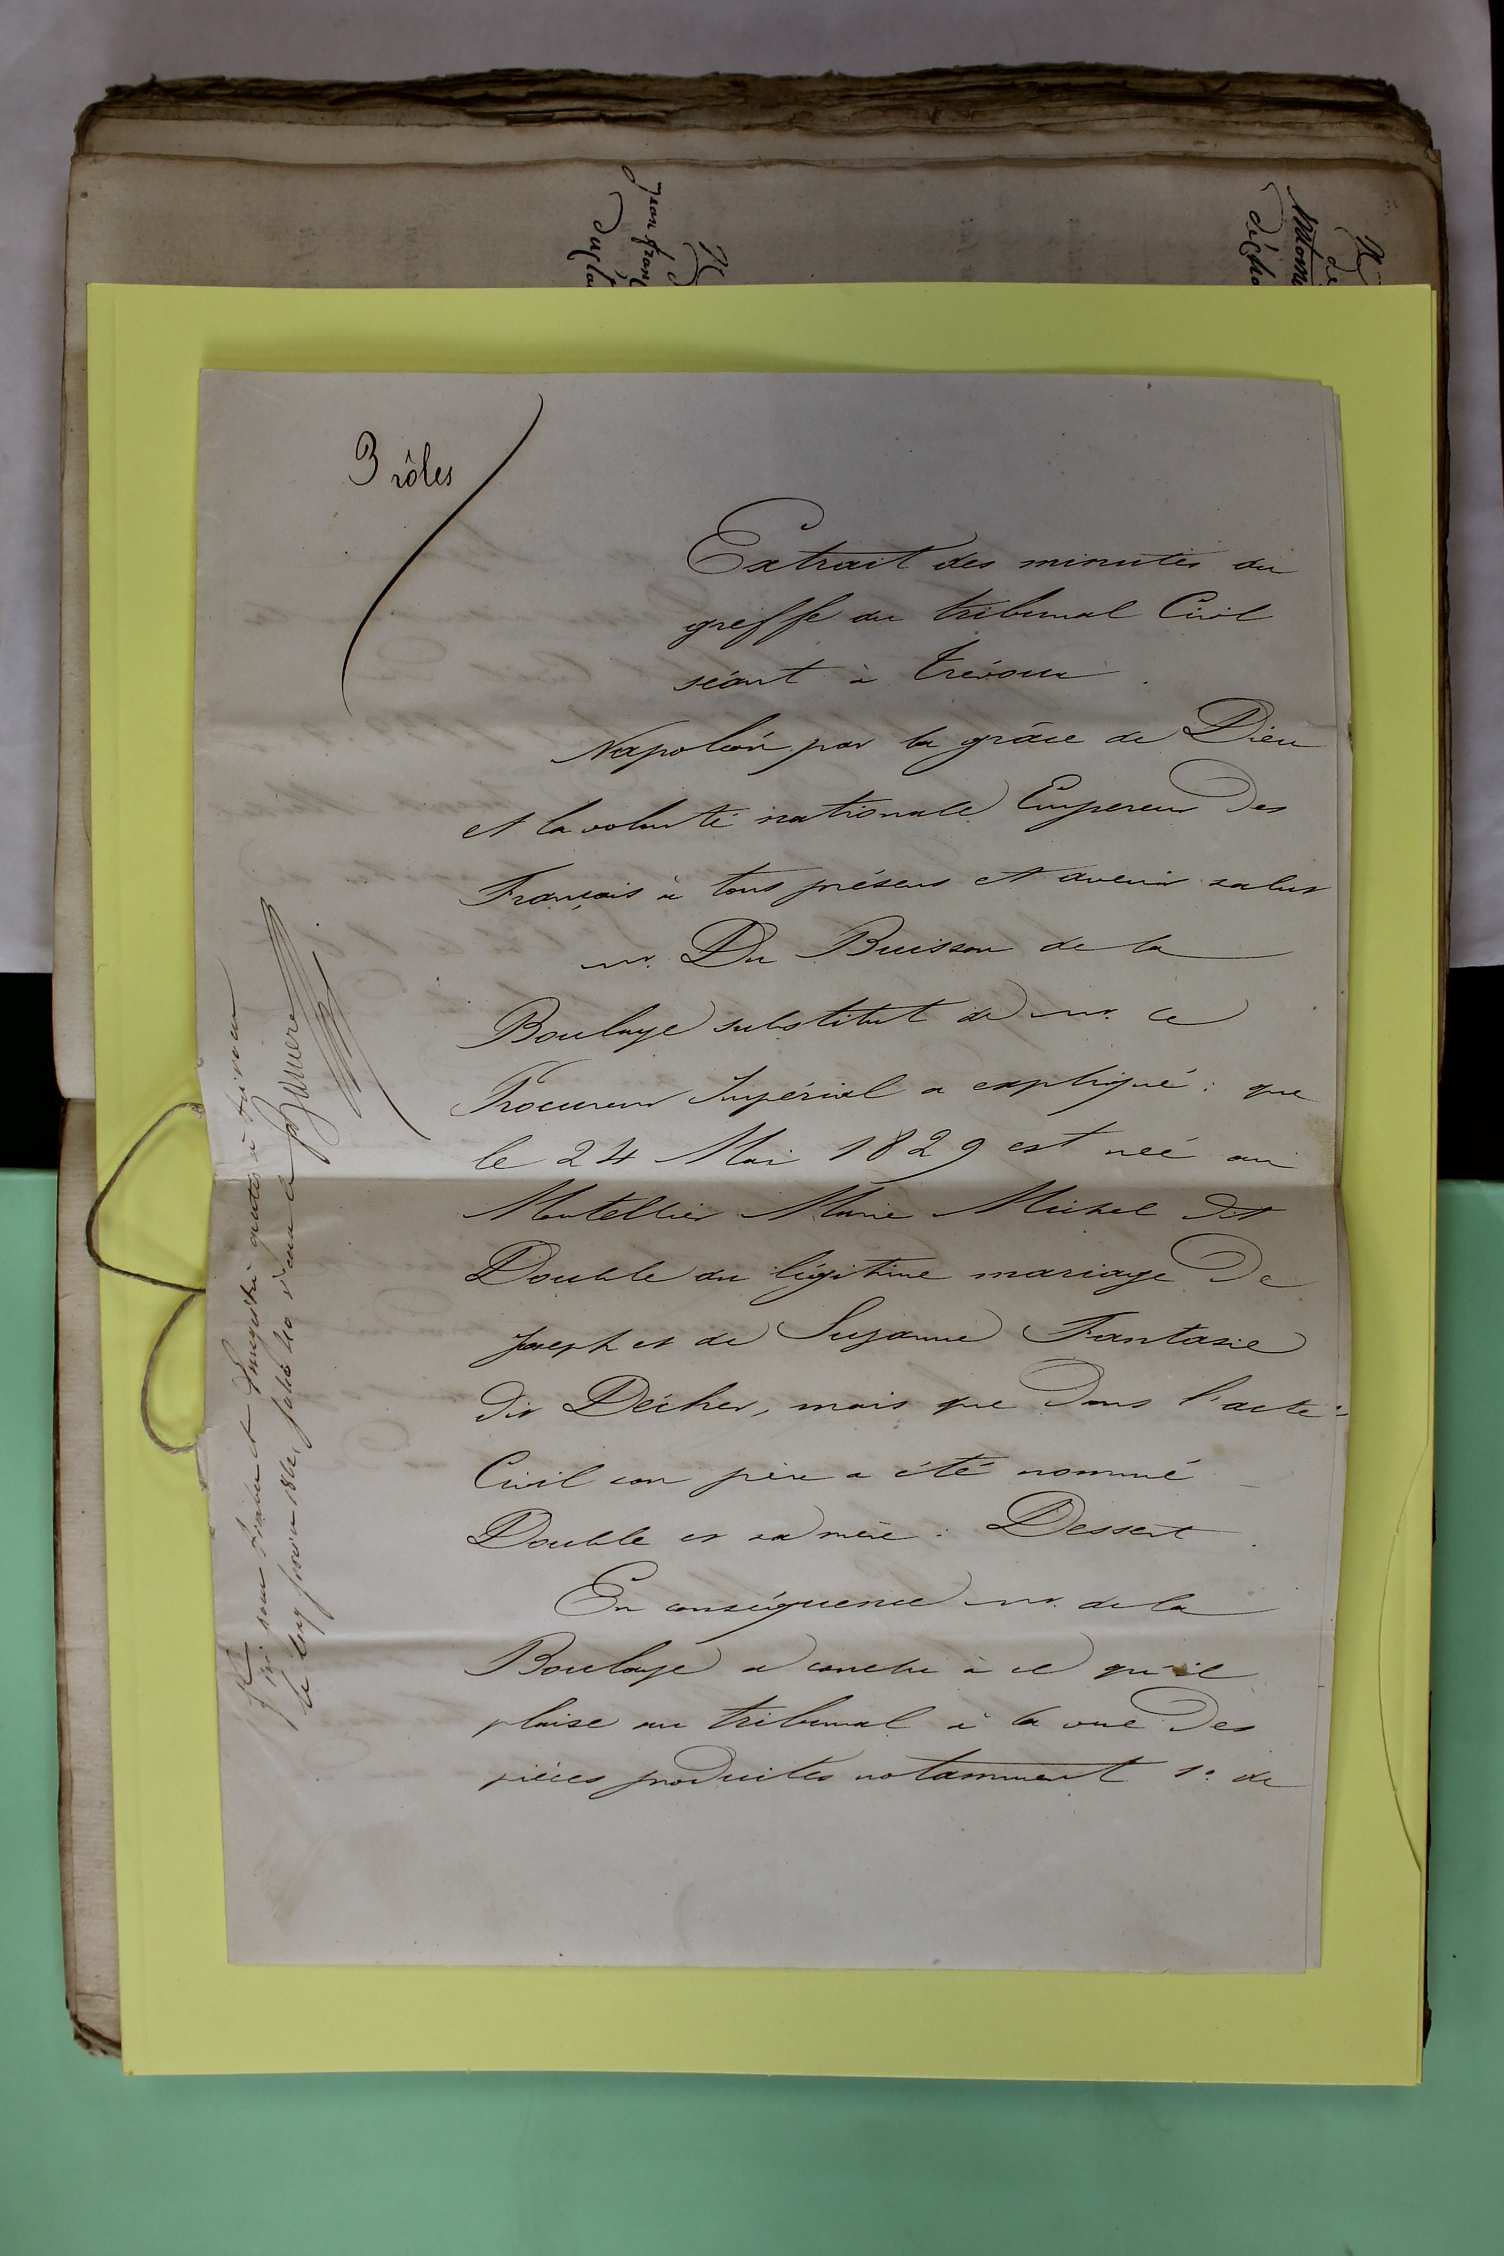 3 rôles
Extrait des minutes du
greffe du tribunal Civil
séant à Trévoux.
Napoléon par la grâce de Dieu
et la volonté nationale Empereur des
Français à tous présens et avenir salut
mr. Du Buisson de la
Boulaye substitut de mr. le
Procureur Impérial a expliqué : que
le 24 Mai 1829 est née au
Montellier Marie Michel dit
Double du légitime mariage de
Joseph et de Suzanne Fantasie
dit Décher, mais que dans l'acte
Civil son père a été nommé
Double et sa mère : Dessert.
En conséquence mr. de la
Boulaye a conclu à ce qu'il
plaise au tribunal à la vue des
pièces produites notamment 1° de
Visé pour timbre et Enregistré gratis à Trévoux
le cinq